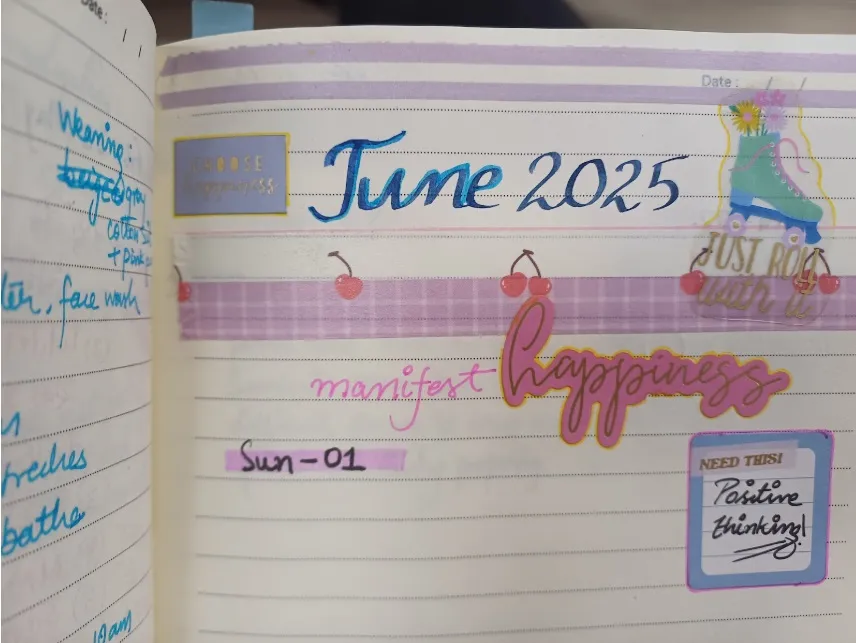 Date:
/ /
Wearing:
gray
cotton
+ pink
face wash
bathe
10am
Date: / /
CHOOSE
HAPPINESS
June 2025
JUST ROLL
with it
manifest happiness
Sun-01
NEED THIS!
Positive
thinking!